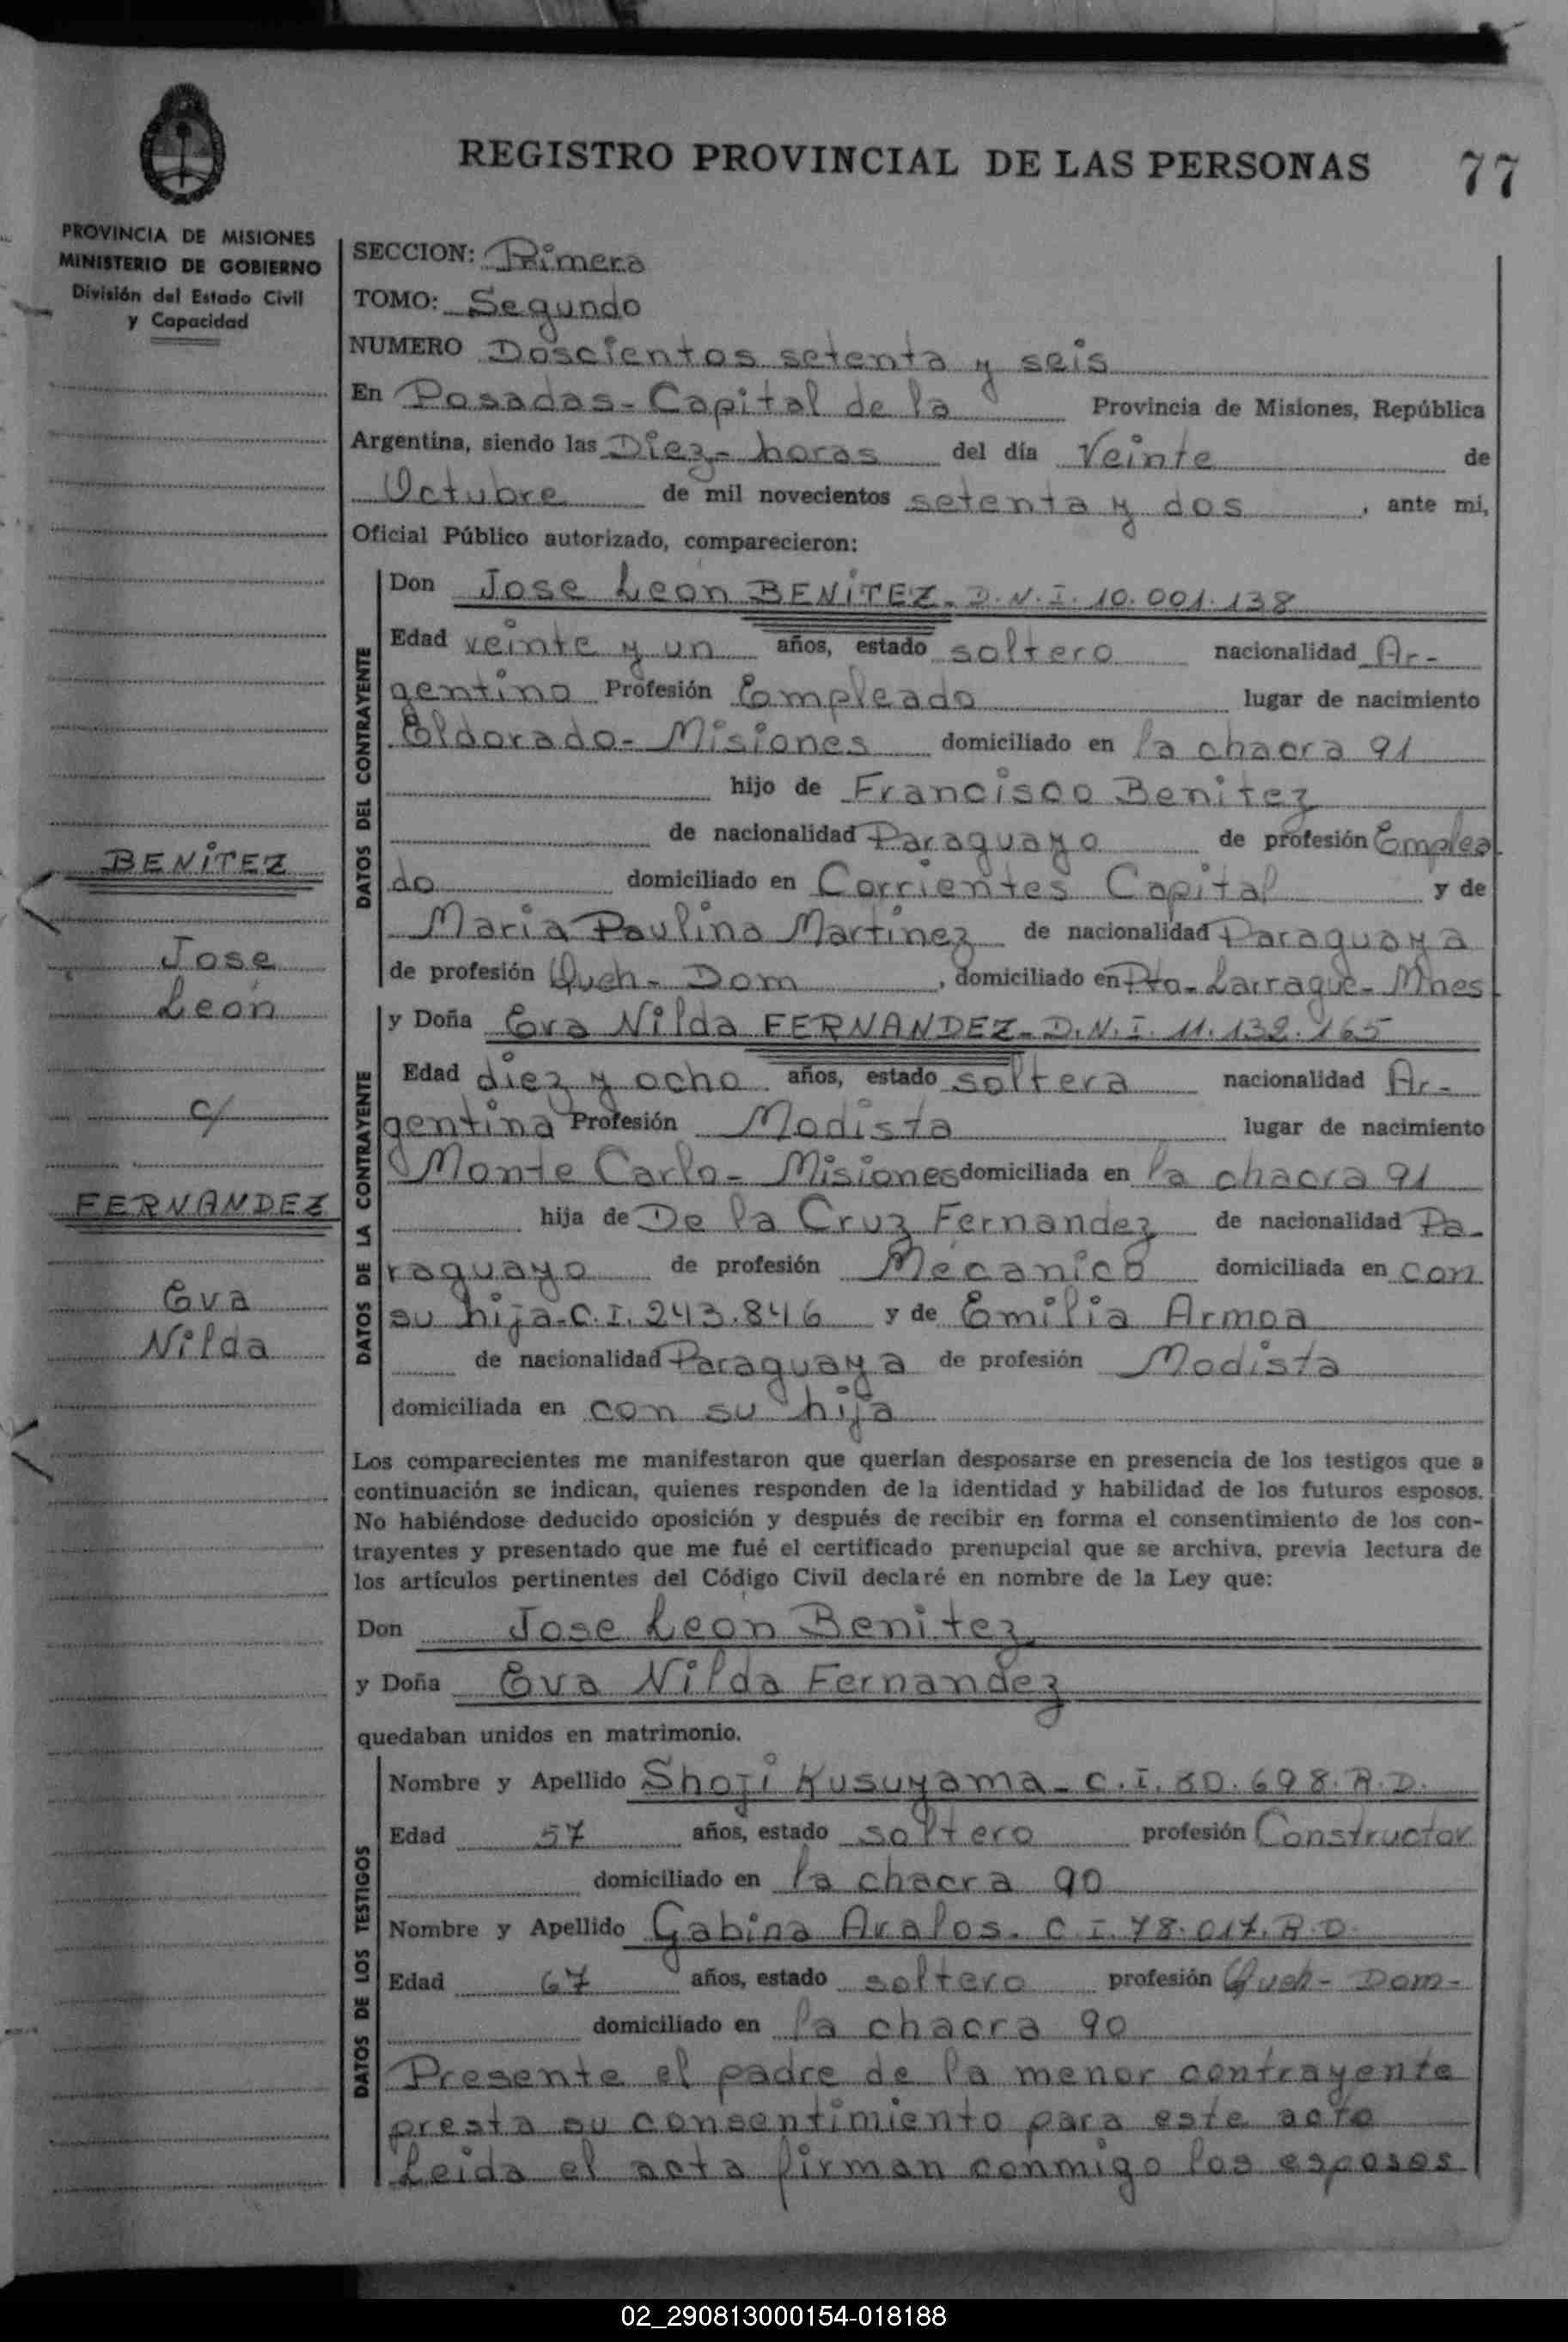 REGISTRO PROVINCIAL DE LAS PERSONAS 77
PROVINCIA DE MISIONES
MINISTERIO DE GOBIERNO
División del Estado Civil
y Capacidad
SECCION: Primera
TOMO: Segundo
NUMERO Doscientos setenta y seis
En Posadas - Capital de la Provincia de Misiones, República
Argentina, siendo las Diez - horas del día Veinte de
Octubre de mil novecientos setenta y dos, ante mi,
Oficial Público autorizado, comparecieron:
DATOS DEL CONTRAYENTE
Don Jose Leon BENITEZ - D.N.I. 10.001.138
Edad veinte y un años, estado soltero nacionalidad Ar-
gentino Profesión Empleado lugar de nacimiento
Eldorado - Misiones domiciliado en la chacra 91
hijo de Francisco Benitez
de nacionalidad Paraguayo de profesión Emplea
do domiciliado en Corrientes Capital y de
Maria Paulina Martinez de nacionalidad Paraguaya
de profesión Queh - Dom, domiciliado en Pto - Larrague - Mnes
DATOS DE LA CONTRAYENTE
y Doña Eva Nilda FERNANDEZ - D.N.I. 11.132.165
Edad diez y ocho años, estado soltera nacionalidad Ar-
gentina Profesión Modista lugar de nacimiento
Monte Carlo - Misiones domiciliada en la chacra 91
hija de De la Cruz Fernandez de nacionalidad Pa-
raguayo de profesión Mecanico domiciliada en con
su hija - C.I. 243.846 y de Emilia Armoa
de nacionalidad Paraguaya de profesión Modista
domiciliada en con su hija
BENITEZ
Jose
Leon
c/
FERNANDEZ
Eva
Nilda
Los comparecientes me manifestaron que querían desposarse en presencia de los testigos que a
continuación se indican, quienes responden de la identidad y habilidad de los futuros esposos.
No habiéndose deducido oposición y después de recibir en forma el consentimiento de los con-
trayentes y presentado que me fué el certificado prenupcial que se archiva, previa lectura de
los artículos pertinentes del Código Civil declaré en nombre de la Ley que:
Don Jose Leon Benitez
y Doña Eva Nilda Fernandez
quedaban unidos en matrimonio.
DATOS DE LOS TESTIGOS
Nombre y Apellido Shoji Kusuyama - C.I. 80.698. R.D.
Edad 57 años, estado soltero profesión Constructor
domiciliado en la chacra 90
Nombre y Apellido Gabina Avalos - C.I. 78.017. R.D.
Edad 67 años, estado soltero profesión Queh - Dom -
domiciliado en la chacra 90
Presente el padre de la menor contrayente
presta su consentimiento para este acto
Leida el acta firman conmigo los esposos
02_290813000154-018188